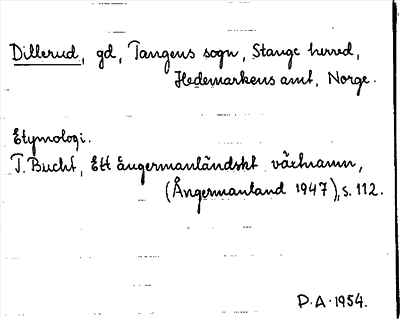 Dillerud, gd, Tangens sogn, Stange herred,
Hedemarkens amt, Norge.
Etymologi.
T. Bucht, Ett ångermanländskt växtnamn,
(Ångermanland 1947), s. 112.
D.A. 1954.